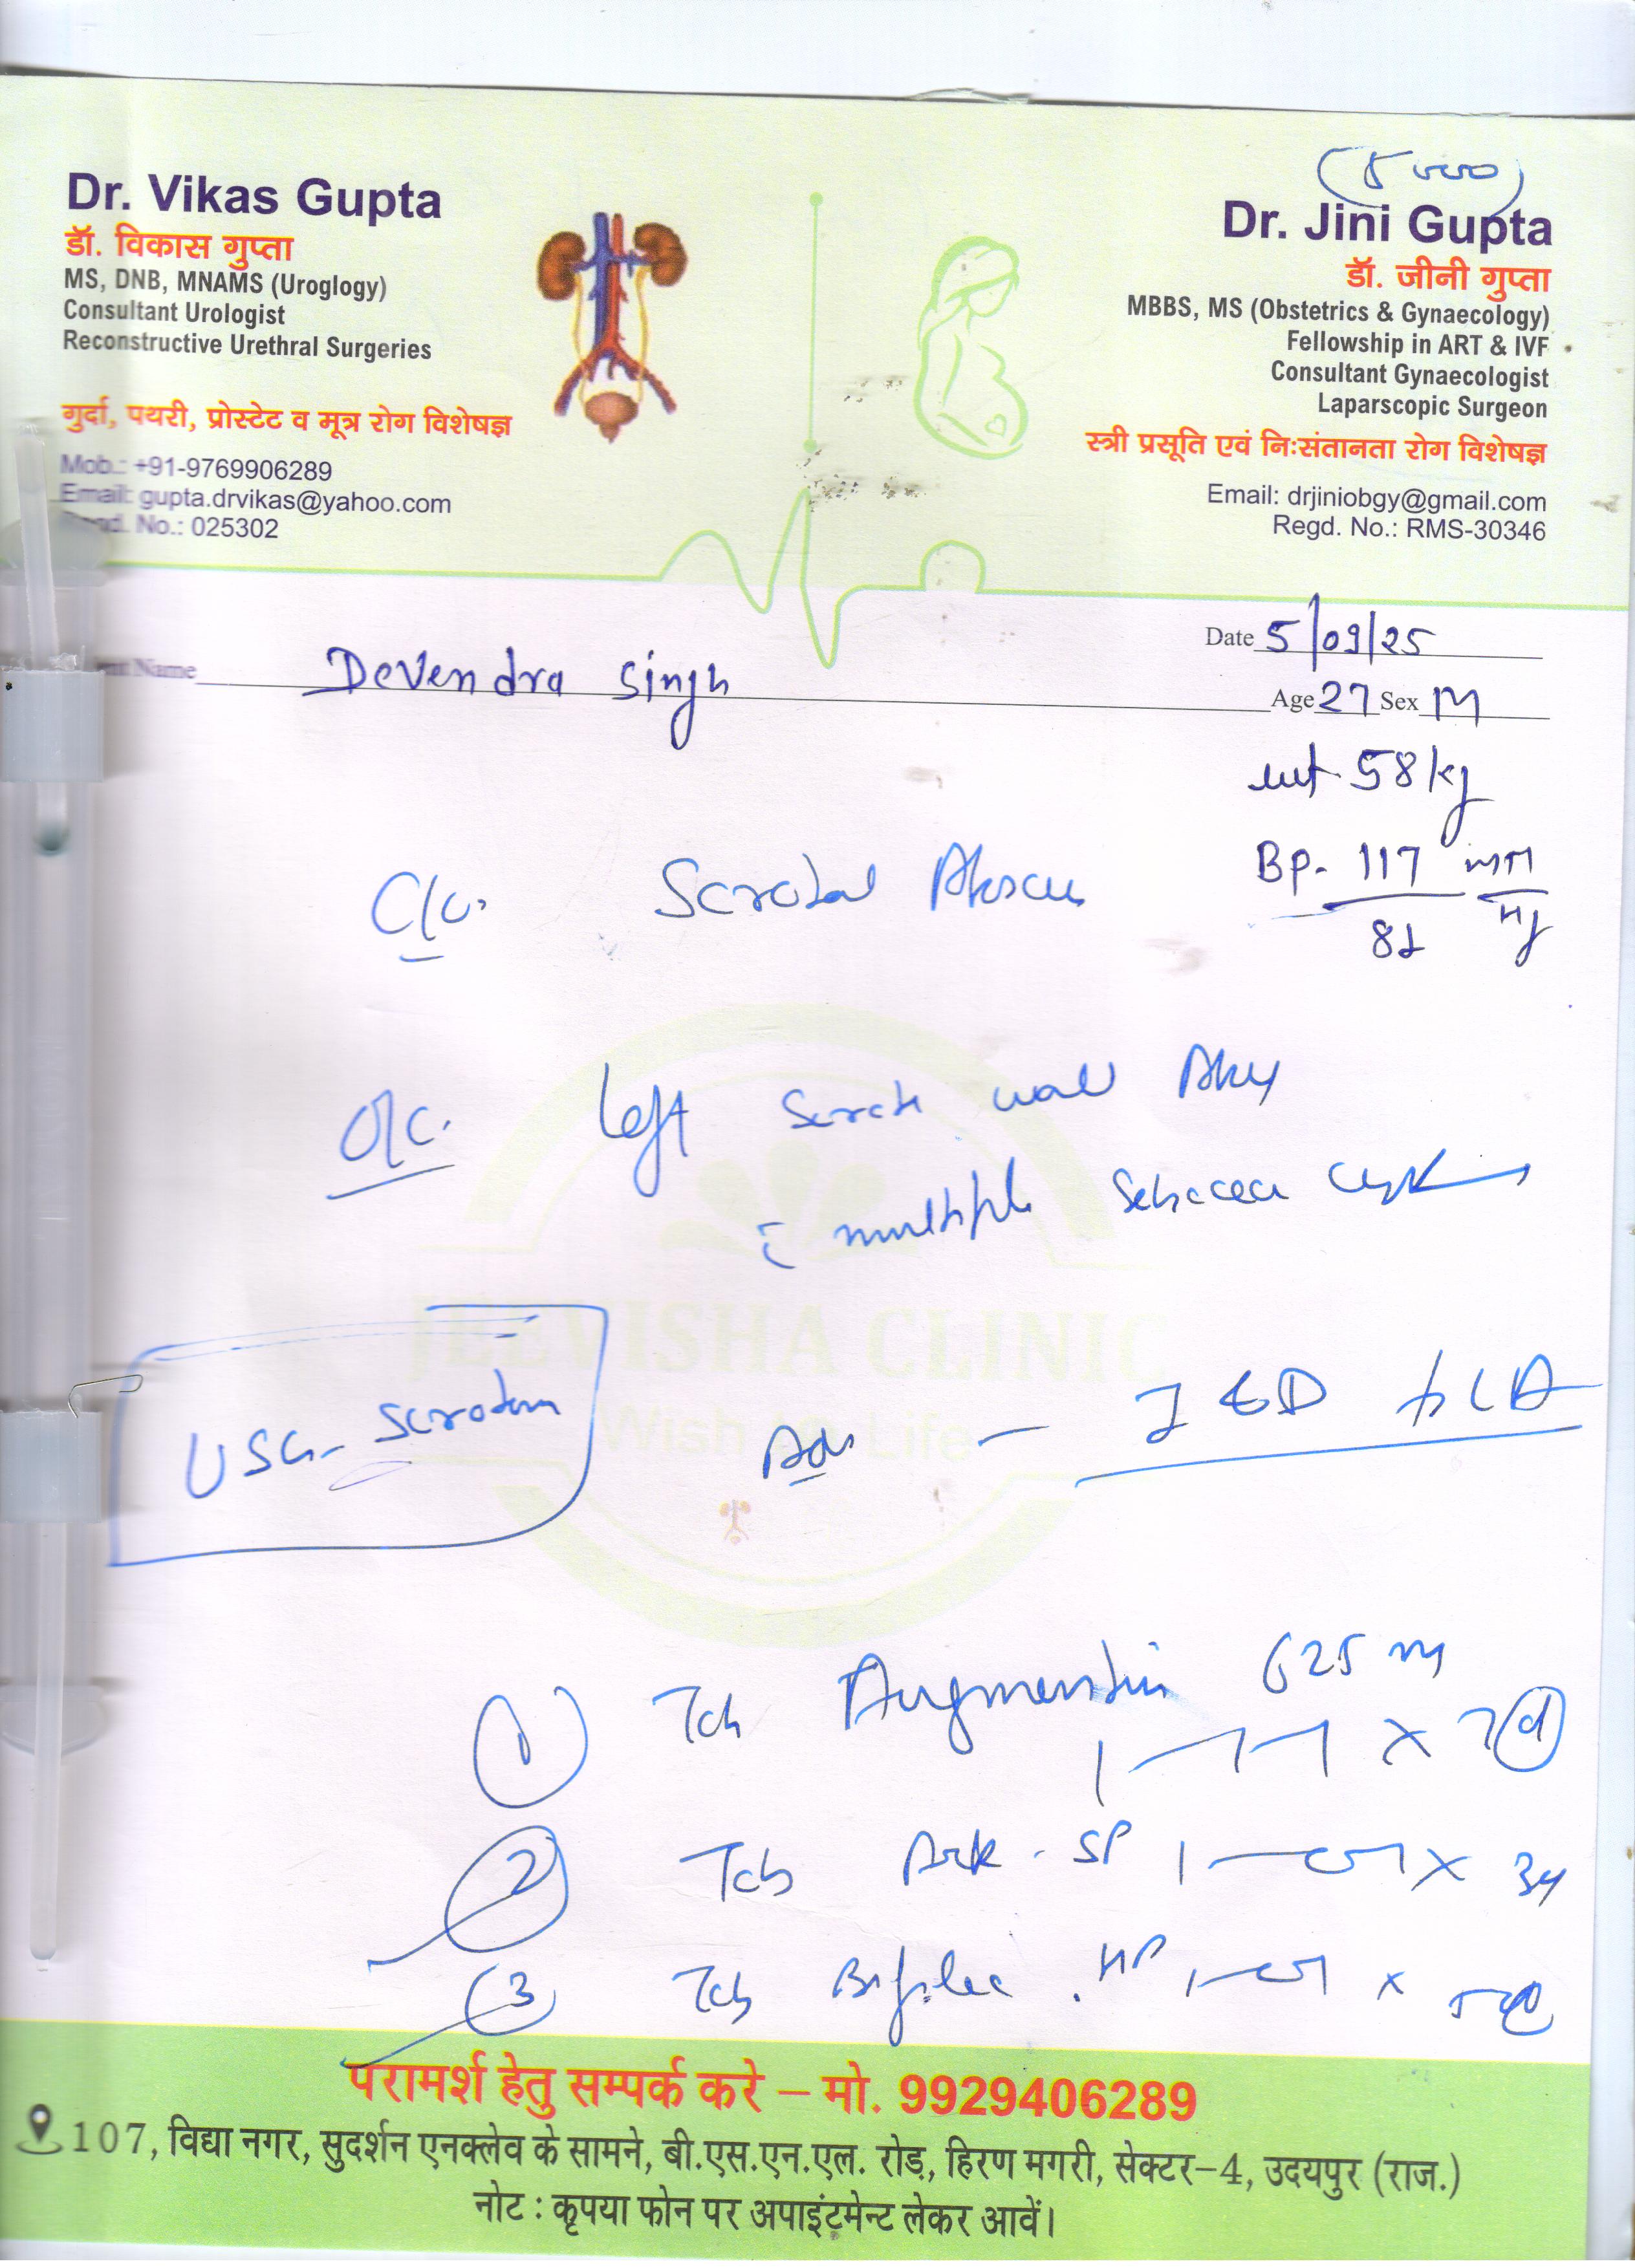 (5000)
Dr. Vikas Gupta
डॉ. विकास गुप्ता
MS, DNB, MNAMS (Uroglogy)
Consultant Urologist
Reconstructive Urethral Surgeries
गुर्दा, पथरी, प्रोस्टेट व मूत्र रोग विशेषज्ञ
Mob.: +91-9769906289
Email: gupta.drvikas@yahoo.com
No.: 025302
Dr. Jini Gupta
डॉ. जीनी गुप्ता
MBBS, MS (Obstetrics & Gynaecology)
Fellowship in ART & IVF
Consultant Gynaecologist
Laparscopic Surgeon
स्त्री प्रसूति एवं निःसंतानता रोग विशेषज्ञ
Email: drjiniobgy@gmail.com
Regd. No.: RMS-30346
Date 5/09/25
Name Devendra Singh
Age 27 Sex M
wt. 58 kg
Bp. 117 mm
81 Hg
C/c. Scrotal Abscess
O/E. Left Scrotal wall
c multiple Sebaceous cyst
JEEVISHA CLINIC
Wish Life
USG - Scrotum
Adv - I & D
1 Tab Augmentin 625 mg
1-1-1 x 7d
2 Tab SP 1-0-1 x 3d
3 Tab HP 1-0-1 x
परामर्श हेतु सम्पर्क करे – मो. 9929406289
107, विद्या नगर, सुदर्शन एनक्लेव के सामने, बी.एस.एन.एल. रोड़, हिरण मगरी, सेक्टर–4, उदयपुर (राज.)
नोट : कृपया फोन पर अपाइंटमेन्ट लेकर आवें।